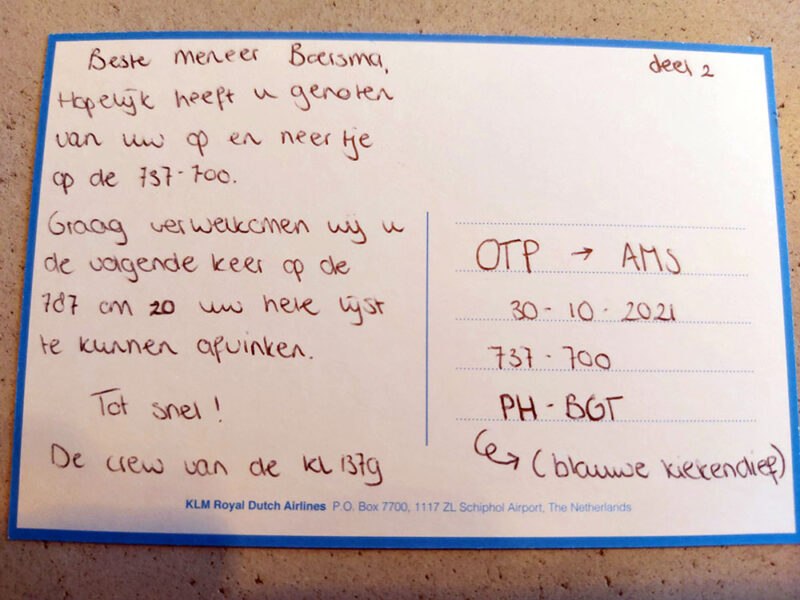 Beste meneer Boersma,
deel 2
Hopelijk heeft u genoten
van uw op en neertje
op de 737-700.
Graag verwelkomen wij u
de volgende keer op de
787 om zo uw hele lijst
te kunnen afvinken.
Tot snel!
De crew van de kl 1379
OTP → AMS
30-10-2021
737-700
PH-BGT
↪ (blauwe kiekendief)
KLM Royal Dutch Airlines P.O. Box 7700, 1117 ZL Schiphol Airport, The Netherlands